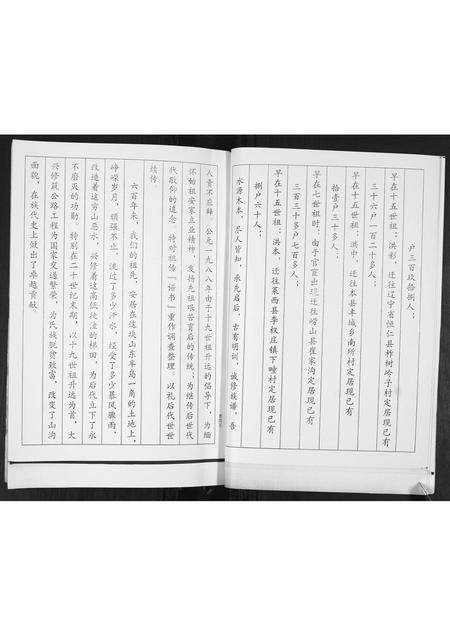 户三百玖拾捌人；
早在十五世祖：洪彩，迁往辽宁省恒仁县柞树岭子村定居现已有
三十六户一百二十多人；
早在十五世祖：洪中，迁往本县丰城乡南所村定居现已有
拾壹户三十多人；
早在七世祖时：由于官宦出现迁往崂山县崔家沟定居现已有
三百三十多户七百多人；
早在十五世祖：洪本，迁往莱西县李权庄镇下疃村定居现已有
捌户六十人；
水源木本，尽人皆知，承先启后，古有明训，诚修族谱，吾
人责不应辞。公元一九八八年由于十九世祖升远的倡导下，为缅
怀始祖安家立业精神，发扬先祖艰苦育后的传统；为继传后世代
代敬仰的追念，特对祖传「谱书」重作调查整理。以礼后代世世
续传。
六百年来，我们的祖先，安居在这块山东半岛一角的土地上，
峥嵘岁月，顽强不止，流过了多少汗水，经受了多少暴风骤雨，
改造着这穷山恶水，兴修着这高低挟洼的梯田，为后代立下了永
不磨灭的功勋。特别在二十世纪末期，以十九世祖升远为首，大
兴修筑公路工程为国家交通繁荣，为氏族脱贫致富，改变了山沟
面貌，在族代史上做出了卓越贡献。